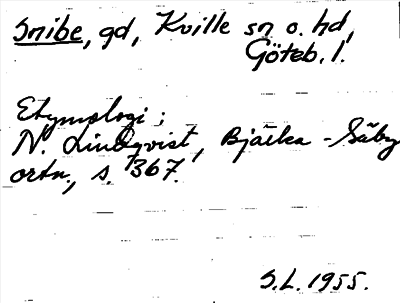 Snibe, gd, Kville sn o. hd,
Göteb. l.
Etymologi;
N. Lindqvist, Bjärka-Säby
ortn., s. 367.
S.L. 1955.